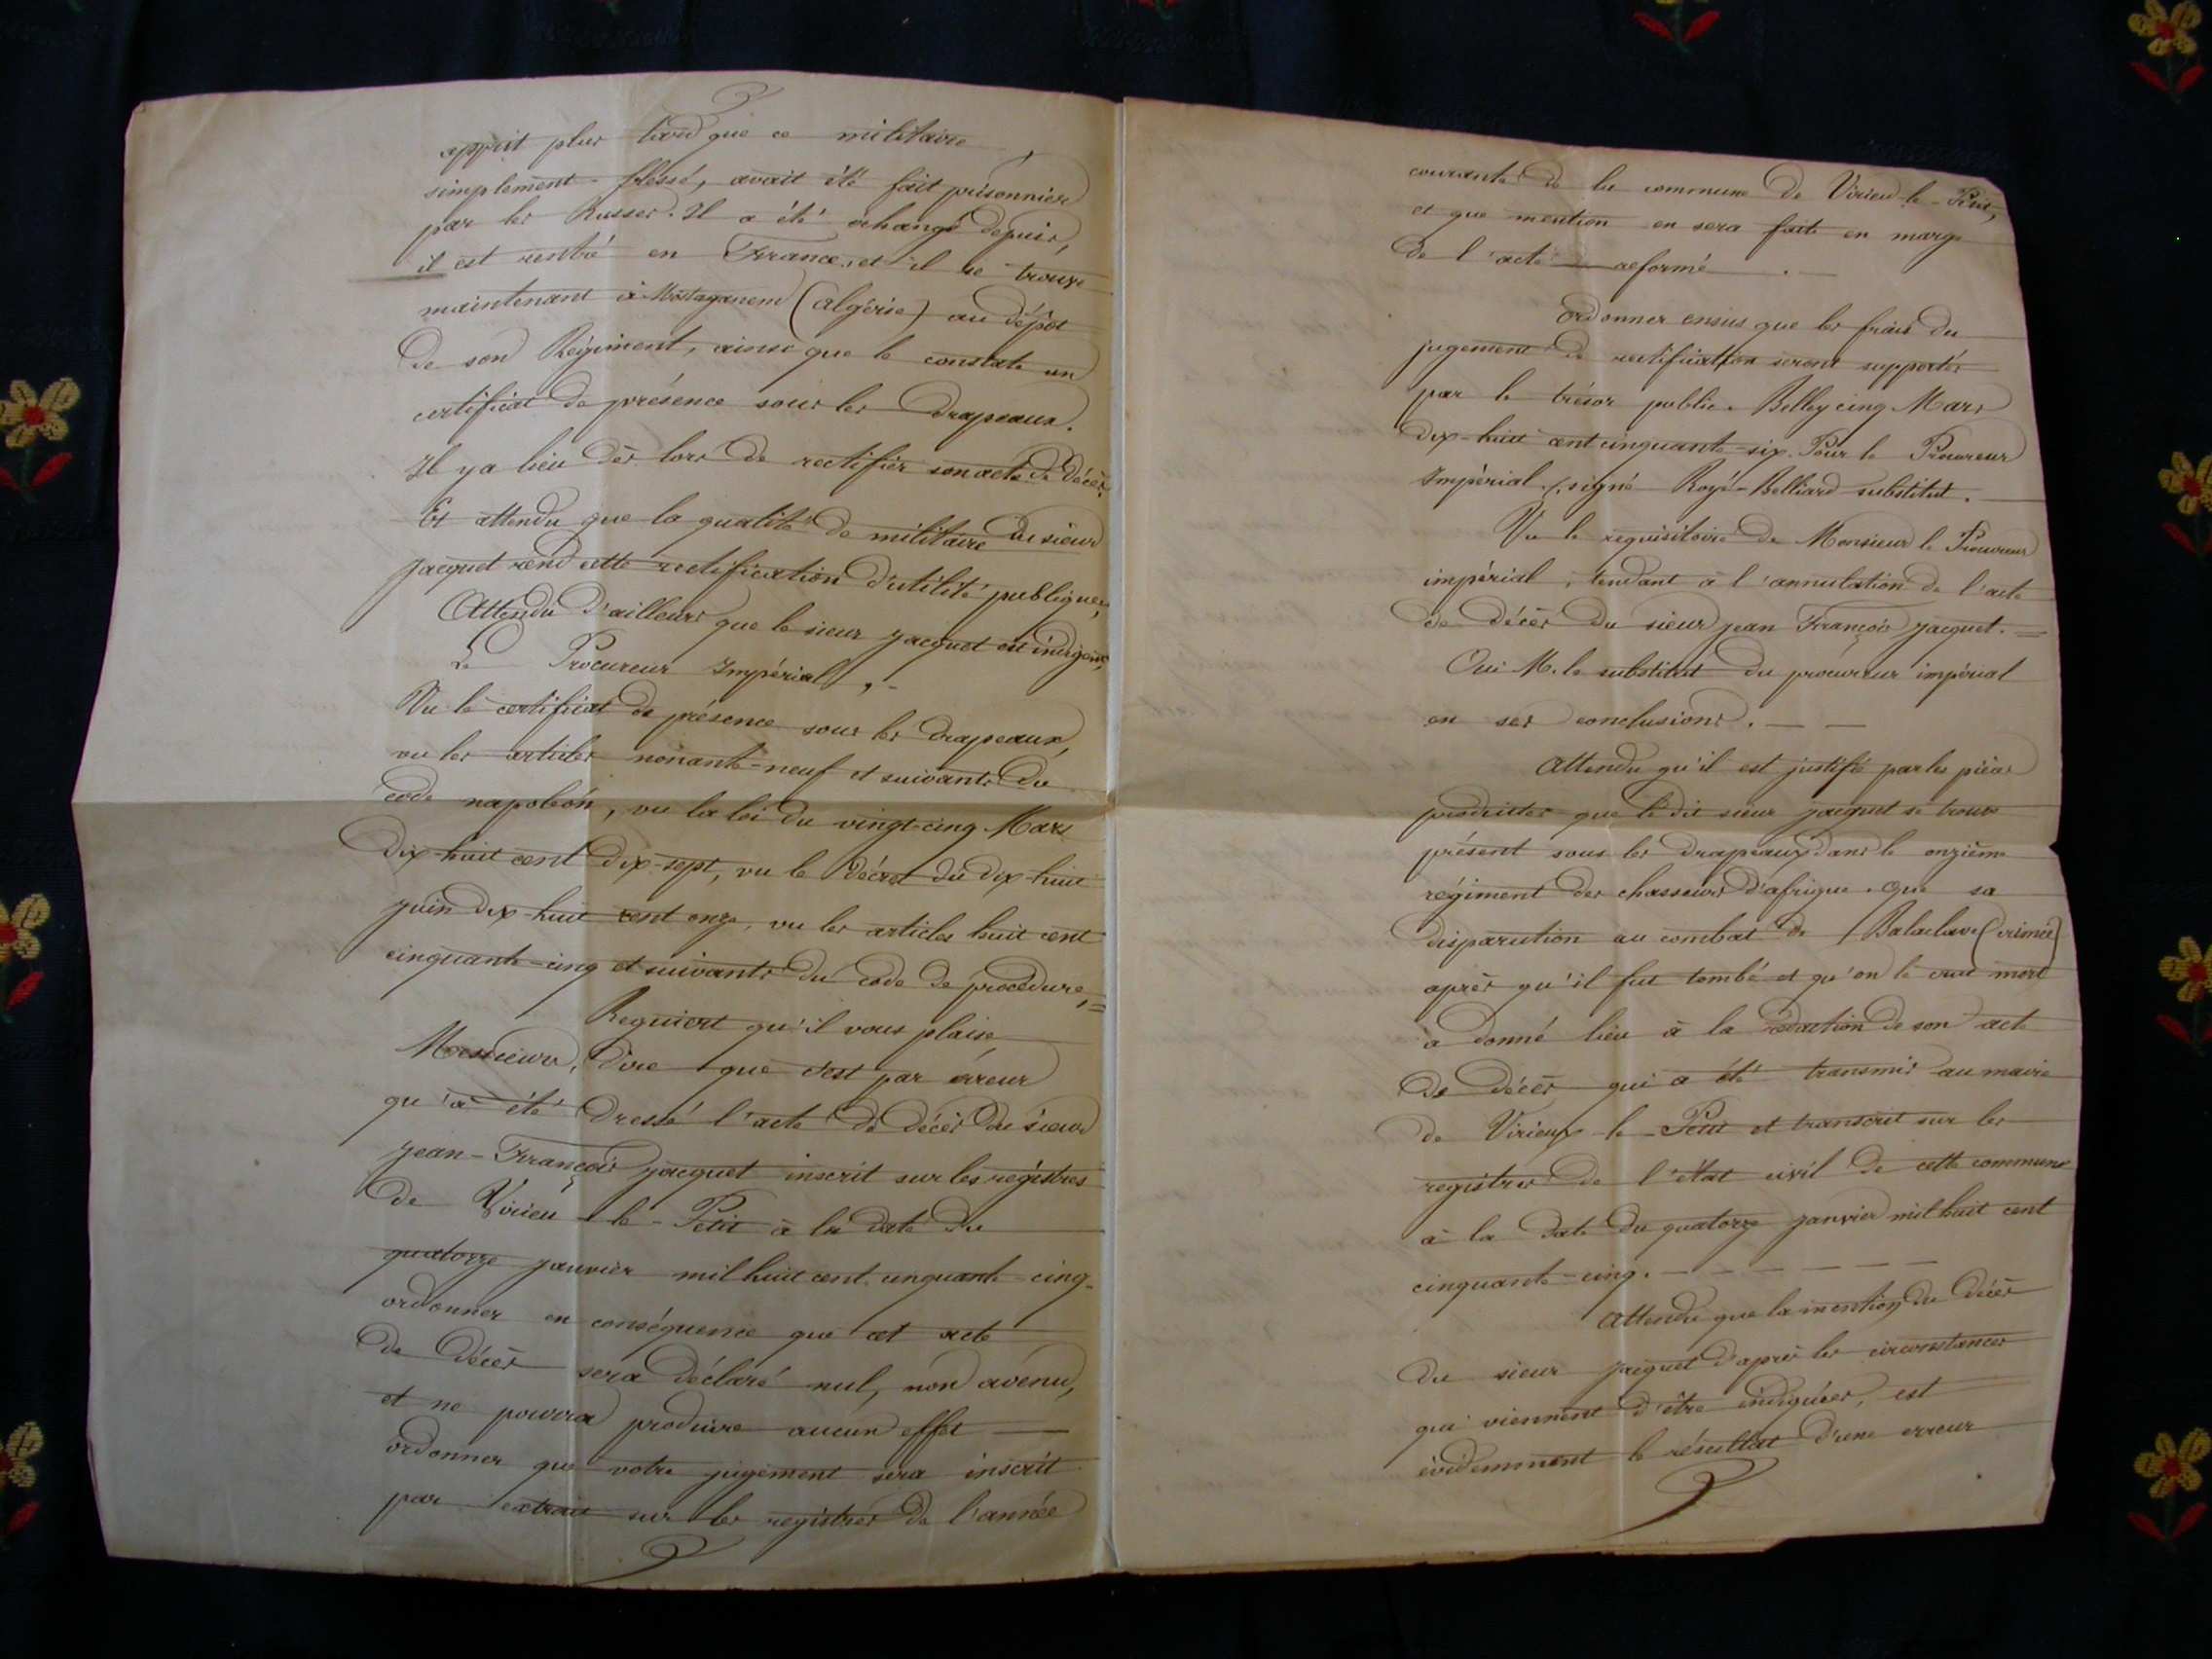 apprit plus tard que ce militaire,
simplement blessé, avait été fait prisonnier
par les Russes. Il a été échangé depuis,
il est rentré en France, et il se trouve
maintenant à Mostaganem (algérie) au dépôt
de son Régiment, ainsi que le constate un
certificat de présence sous les Drapeaux.
Il y a lieu dès lors de rectifier son acte de décès.
Et attendu que la qualité de militaire du sieur
Jacquet rend cette rectification d'utilité publique,
Attendu d'ailleurs que le sieur Jacquet est indigent,
Le Procureur Impérial,
Vu le certificat de présence sous les drapeaux,
vu les articles nonante-neuf et suivants du
code napoléon, vu la loi du vingt-cinq Mars
dix-huit cent dix-sept, vu le décret du dix-huit
juin dix-huit cent onze, vu les articles huit cent
cinquante-cinq et suivants du code de procédure,
Requiert qu'il vous plaise,
Messieurs, dire que c'est par érreur
qu'a été dressé l'acte de décès du sieur
Jean-François Jacquet inscrit sur les registres
de Virieu-le-Petit à la date du
quatorze janvier mil huit cent cinquante-cinq.
ordonner en conséquence que cet acte
de décès sera déclaré nul, non avenu,
et ne pourra produire aucun effet
ordonner que votre jugement sera inscrit
par extrait sur les registres de l'année
courante de la commune de Virieu-le-Petit,
et que mention en sera faite en marge
de l'acte réformé.
Ordonner ensuis que les frais du
jugement de rectification seront supportés
par le trésor public. Belley cinq Mars
dix-huit cent cinquante-six. Pour le Procureur
Impérial, signé Royé-Belliard substitut.
Vu le requisitoire de Monsieur le Procureur
impérial, tendant à l'annulation de l'acte
de décès du sieur jean François Jacquet.
Oui M. le substitut du procureur impérial
en ses conclusions.
Attendu qu'il est justifié par les pièces
produites que le dit sieur Jacquet se trouve
présent sous les Drapeaux dans le onzième
régiment des chasseurs d'afrique. que sa
disparution au combat de Balaclava (crimée)
après qu'il fut tombé et qu'on le crut mort
a donné lieu à la rédaction de son acte
de décès qui a été transmis au maire
de Virieux-le-Petit et transcrit sur les
registres de l'état civil de cette commune
à la date du quatorze janvier mil huit cent
cinquante-cinq.
Attendu que la mention du décès
du sieur Jacquet d'après les circonstances
qui viennent d'être indiquées, est
évidemment le résultat d'une erreur